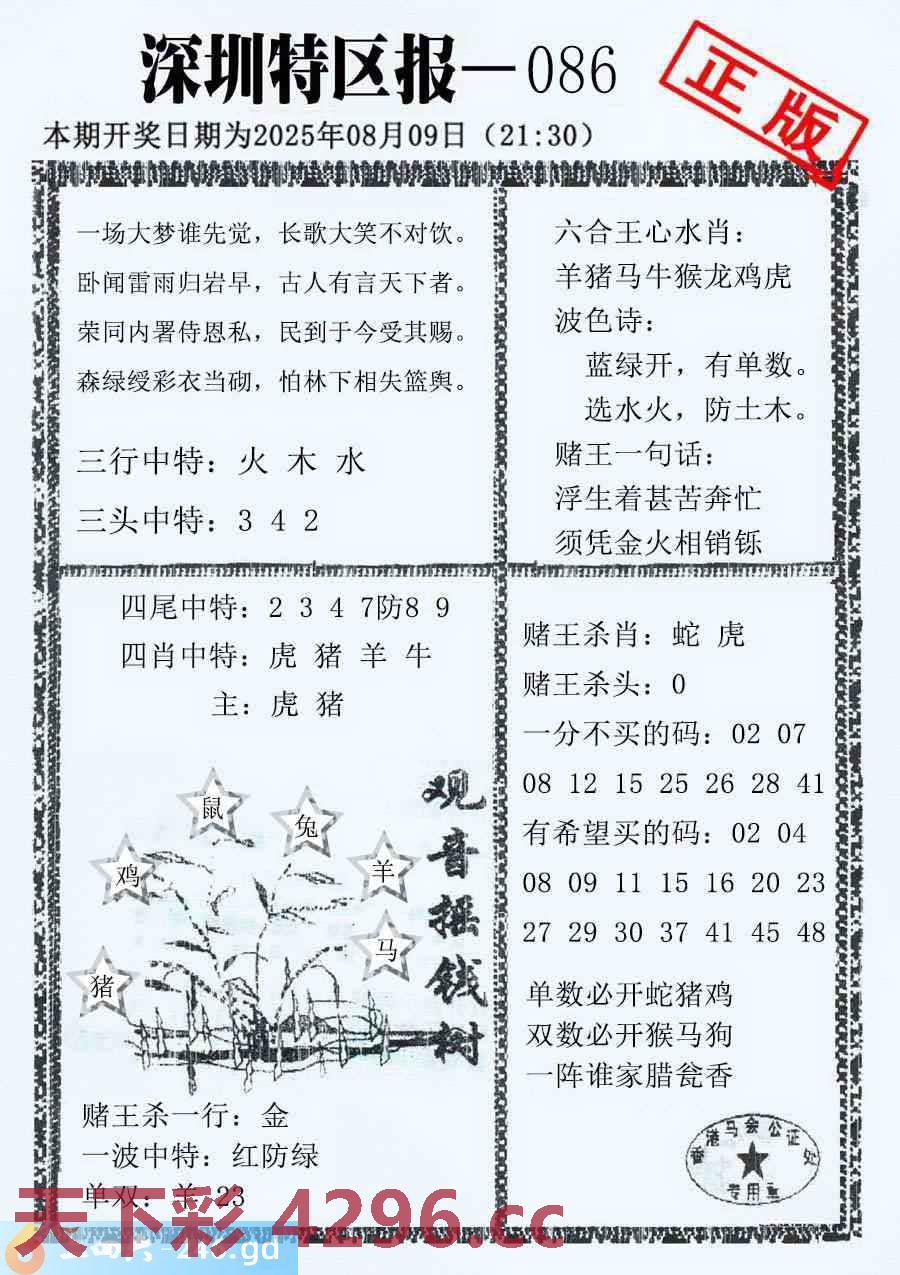 深圳特区报—086
正版
本期开奖日期为2025年08月09日（21:30）
一场大梦谁先觉，长歌大笑不对饮。
卧闻雷雨归岩早，古人有言天下者。
荣同内署侍恩私，民到于今受其赐。
森绿绶彩衣当砌，怕林下相失篮舆。
三行中特：火 木 水
三头中特：3 4 2
六合王心水肖：
羊猪马牛猴龙鸡虎
波色诗：
蓝绿开，有单数。
选水火，防土木。
赌王一句话：
浮生着甚苦奔忙
须凭金火相销铄
四尾中特：2 3 4 7防8 9
四肖中特：虎 猪 羊 牛
主：虎 猪
观音摇钱树
鼠
兔
鸡
羊
马
猪
赌王杀一行：金
一波中特：红防绿
单双：羊 23
赌王杀肖：蛇 虎
赌王杀头：0
一分不买的码：02 07
08 12 15 25 26 28 41
有希望买的码：02 04
08 09 11 15 16 20 23
27 29 30 37 41 45 48
单数必开蛇猪鸡
双数必开猴马狗
一阵谁家腊瓮香
香港马会公证处
专用章
天下彩 4296.cc